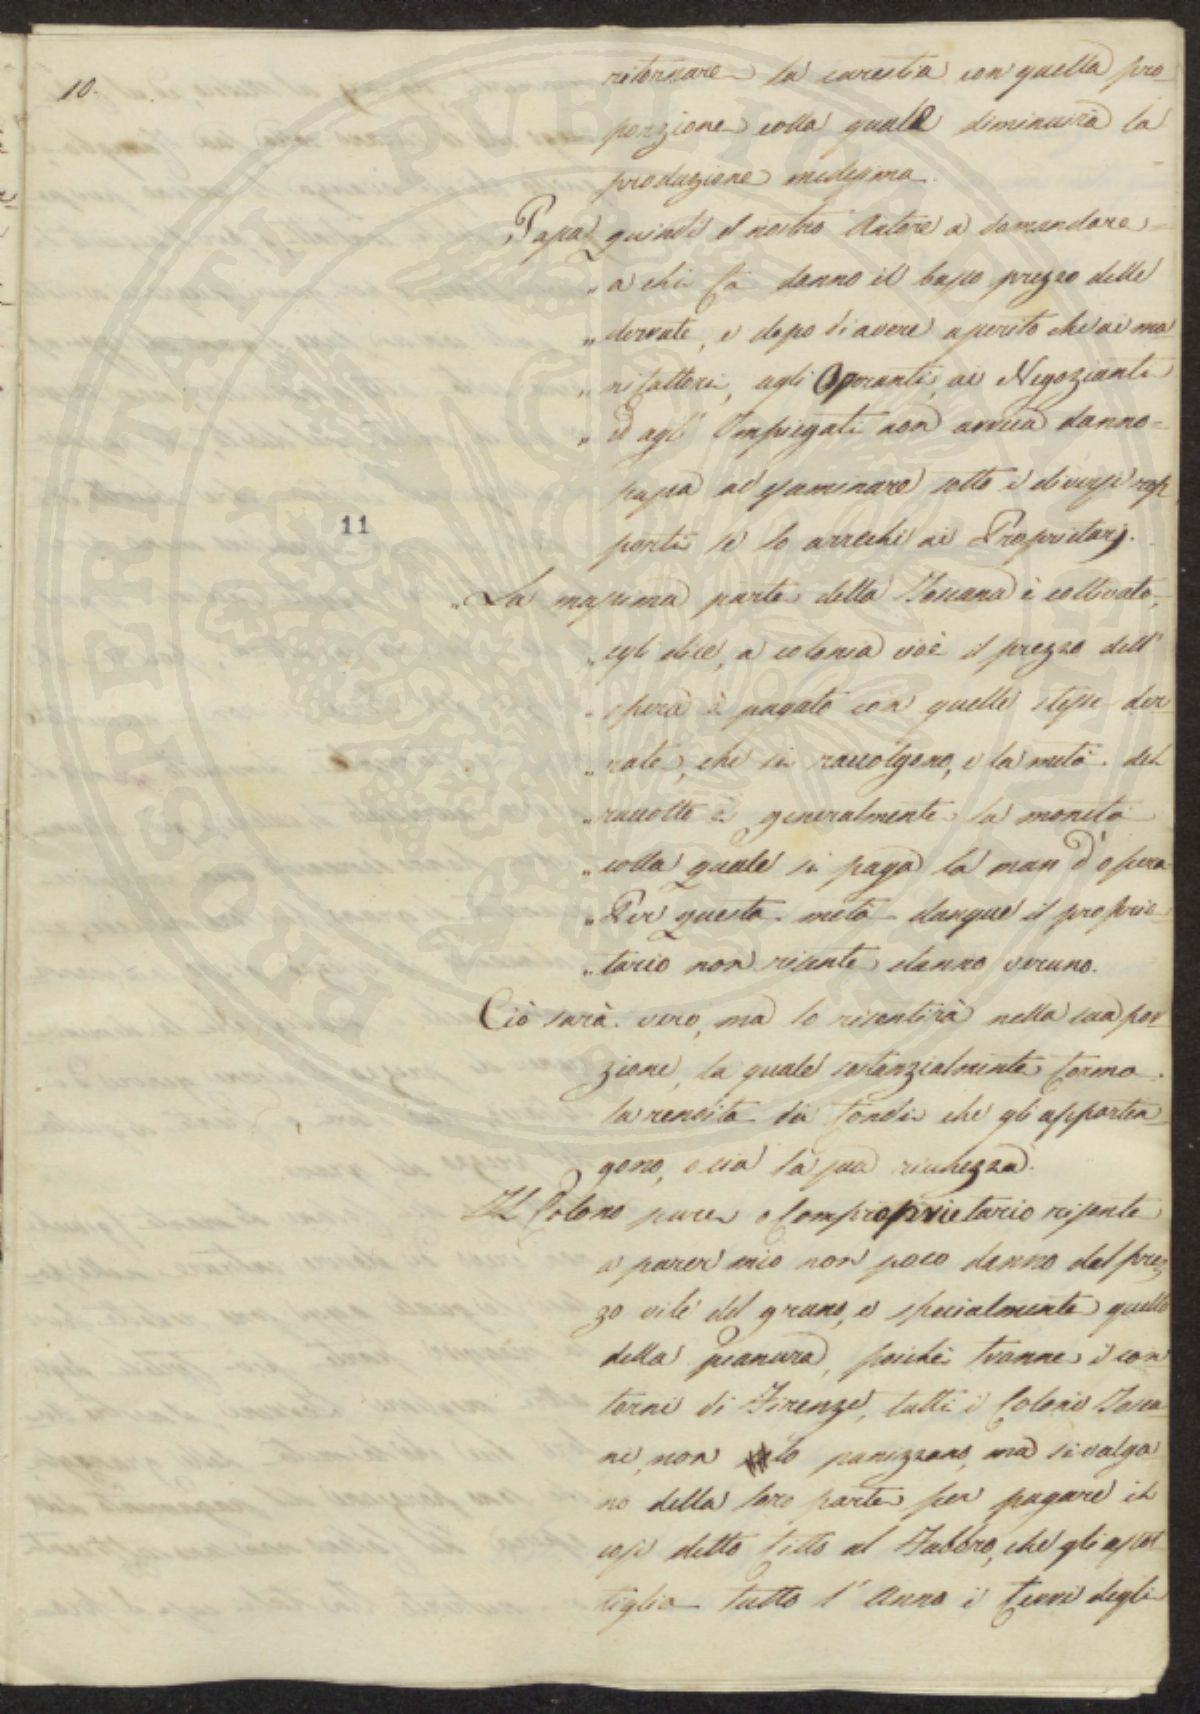 10.
ritornare la carestia con quella pro-
porzione colla quale diminuirà la
produzione medesima.
Passa quindi il nostro Autore a domandare =
„ a chi fa danno il basso prezzo delle
„ derrate, e dopo di avere asserito che ai ma
„ nifattori, agli Operanti, ai Negozianti
„ ed agl' Impiegati non arreca danno =
passa ad esaminare sotto i diversi rap
porti se lo arrechi ai Proprietarj.
11
„ La massima parte della Toscana è coltivata,
„ egli dice, a colonia cioè il prezzo dell'
„ opera è pagato con quelle stesse der
„ rate, che si raccolgono, e la metà del
„ raccolto è generalmente la moneta
„ colla quale si paga la man d'opera
„ Per questa metà dunque il proprie-
„ tario non risente danno veruno.
Ciò sarà vero, ma lo risentirà nella sua por
zione, la quale sostanzialmente forma
la rendita di fondi che gli apparten
gono, ossia la sua ricchezza.
Il Colono pure o Comproprietario risente
a parer mio non poco danno dal prez
zo vile del grano, e specialmente quello
della pianura, poichè tranne i con
torni di Firenze, tutti i Coloni Tosca
ni, non lo panizzano, ma si valgo
no della loro parte per pagare il
così detto fitto al Fabbro, che gli assot
tiglia tutto l'Anno i ferri degli
PROSPERITATI PUBLICAE AUGENDAE